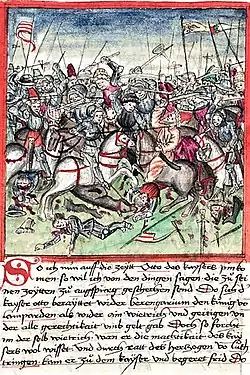 So ich nun auf die zeytt Otto des kaysers pin ko
men so wil ich von den dingen sagen die zu sei
nen zeytten zu augspurg geschehen seind Do sich d
kayser otto berayttet wider berengarium den künig vo
lamparden als wider ain wietrich und geitigen
der alle gerechtikait umb gelt gab Doch so forcht
im der selb wietrich wan er die machtikait des kay
sers wol wisset und durch rat des hertzogen vo
tringen kam er zu dem kayser und begeret frid Do